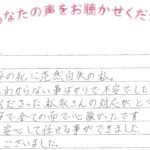 あなたの声をお聴かせくだ
の死に茫然自失の私。
わからない事ばかりで不安でした
くださった松永さんの対応がとて
寧で全ての面で心強かったです
安心して任せる事ができました
ございました。